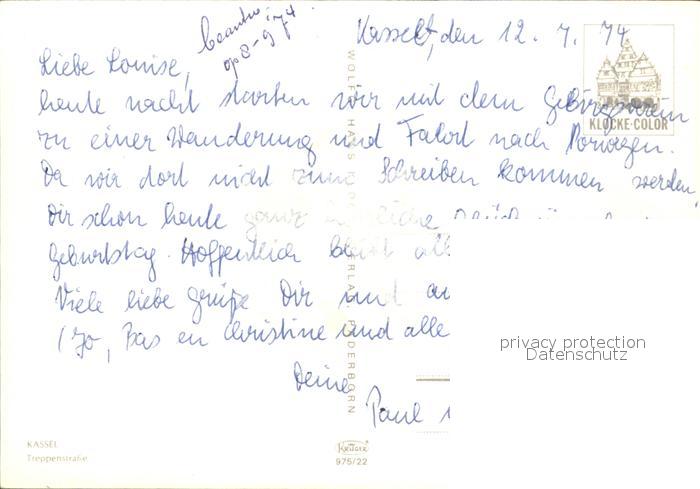 beantw.
op 8-9 74
Kassel, den 12. 7. 74
Liebe Louise,
heute nacht starten wir mit dem Gebirgsverein
zu einer Wanderung und Fahrt nach Norwegen.
Da wir dort nicht zum Schreiben kommen werden
Dir schon heute ganz
Geburtstag. Hoffentlich bleibt
Viele liebe Grüße Dir und
(Jo, Bas en Christine und alle
Deine
Paul
KLOCKE-COLOR
privacy protection
Datenschutz
KASSEL
Treppenstraße
KRÜGER
975/22